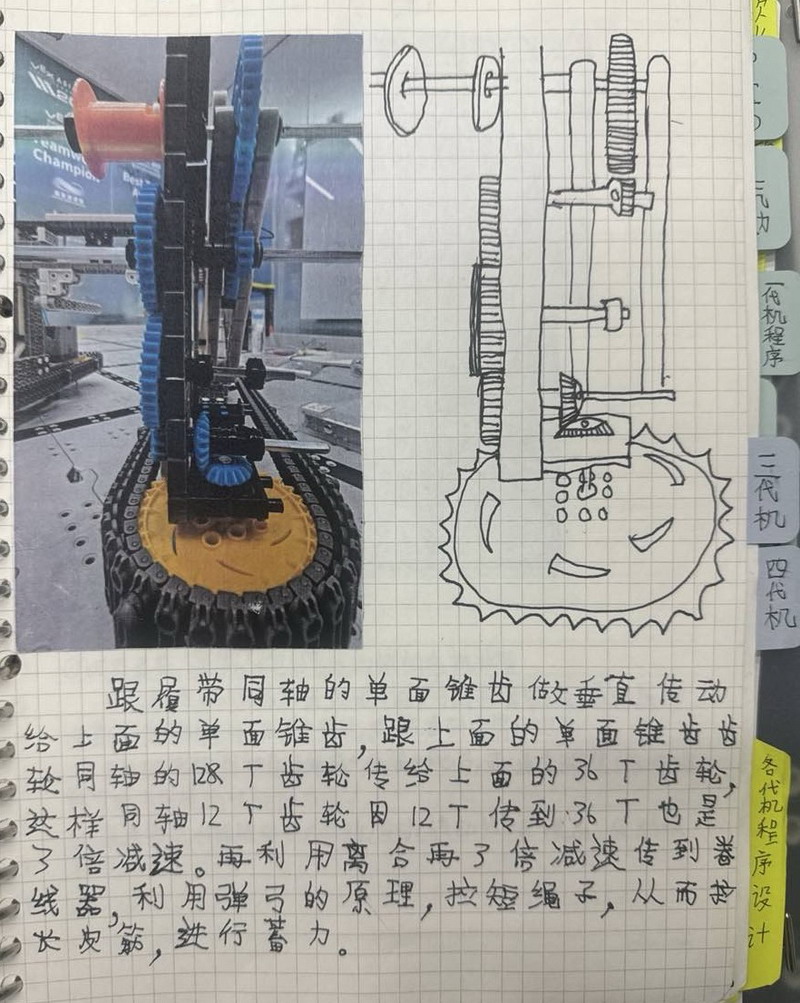 Teamwork
Champion
Best
气动
一代机程序
三代机
四代机
各代机程序设计
跟履带同轴的单面锥齿做垂直传动
给上面的单面锥齿，跟上面的单面锥齿齿
轮同轴的128T齿轮传给上面的36T齿轮，
这样同轴12T齿轮因12T传到36T也是
了倍减速。再利用离合再了倍减速传到卷
线器，利用弹弓的原理，拉短绳子，从而拉
长皮筋，进行蓄力。